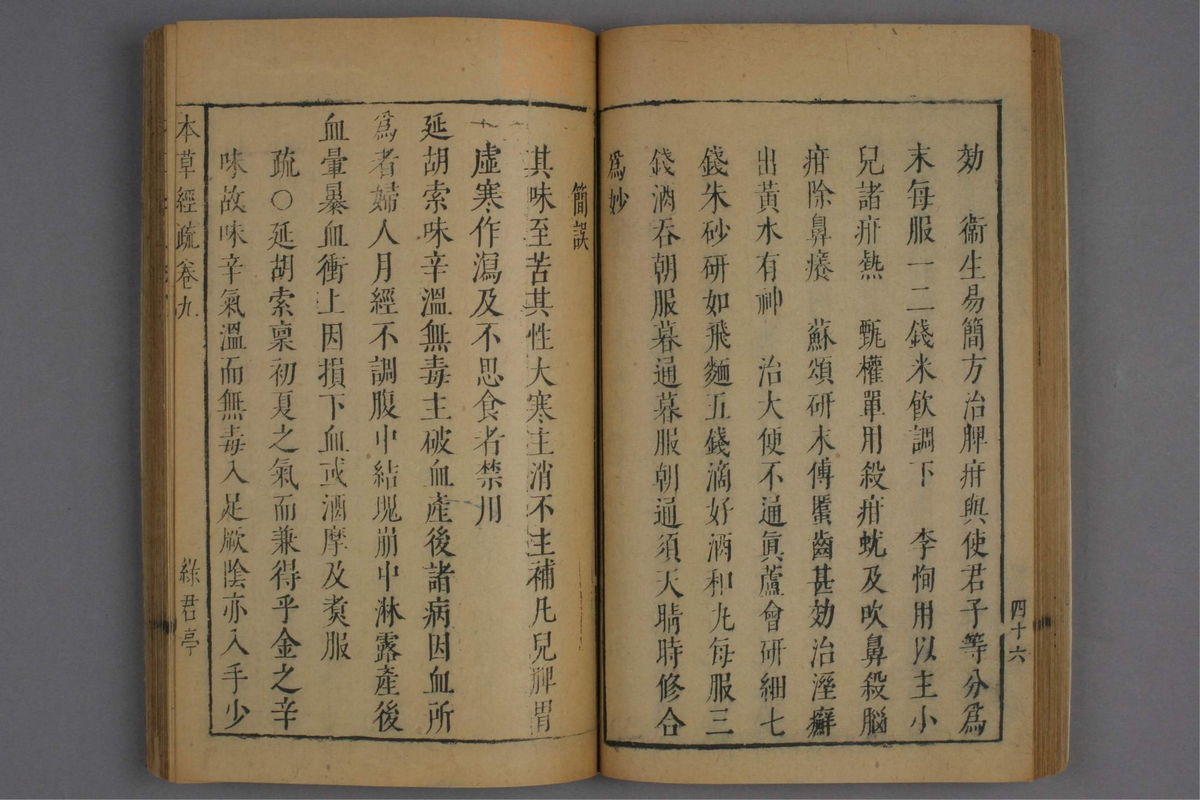 効　衞生易簡方治脾疳與使君子等分爲
末每服一二錢米飲調下　李恂用以主小
兒諸疳熱　甄權單用殺疳蚘及吹鼻殺腦
疳除鼻癢　蘇頌研末傅䘌齒甚効治溼癬
出黃水有神　治大便不通眞蘆會研細七
錢朱砂研如飛麵五錢滴好酒和丸每服三
錢酒吞朝服暮通暮服朝通須天晴時修合
爲妙
四十六
簡誤
其味至苦其性大寒主消不主補凡兒脾胃
虛寒作瀉及不思食者禁用
延胡索味辛溫無毒主破血產後諸病因血所
爲者婦人月經不調腹中結塊崩中淋露產後
血暈暴血衝上因損下血或酒摩及煑服
疏〇延胡索稟初夏之氣而兼得乎金之辛
味故味辛氣溫而無毒入足厥陰亦入手少
本草經疏卷九
綠君亭